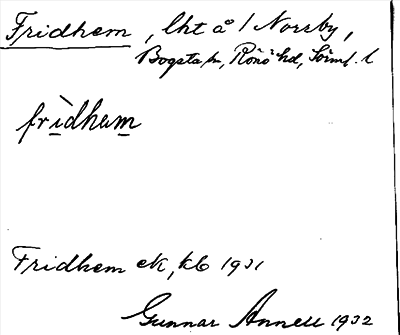 Fridhem, lht å 1 Norsby,
Bogsta sn, Rönö hd, Sörml. l
frìdhem
Fridhem ek, kb 1931
Gunnar Annell 1932